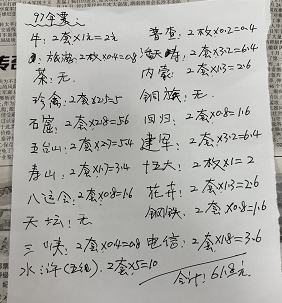 97年票
牛: 2套×1元=2元 普查: 2枚×0.2=0.4
旅游: 2枚×0.4=0.8 2套×3.2=6.4
茶: 无. 内蒙: 2套×1.3=2.6
珍禽: 2套×2.5=5 铜旗: 无.
石窟: 2套×2.8=5.6 回归: 2套×0.8=1.6
五台山: 2套×2.7=5.4 建军: 2套×3.2=6.4
寿山: 2套×1.7=3.4 十五大: 2枚×1=2
八运会: 2套×0.8=1.6 花卉: 2套×1.3=2.6
天坛: 无 钢铁: 2套×0.8=1.6
三峡: 2套×0.4=0.8 电信: 2套×1.8=3.6
水浒(五组). 2套×5=10 合计: 61.8元